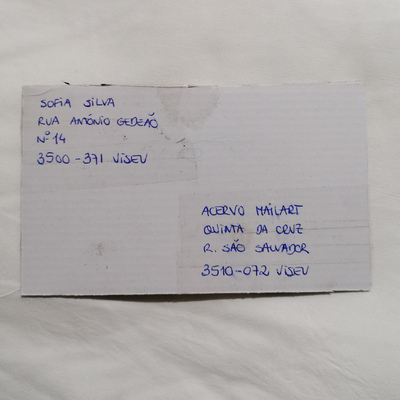 SOFIA SILVA
RUA ANTÓNIO GEDEÃO
Nº 14
3500-371 VISEU
ACERVO MAILART
QUINTA DA CRUZ
R. SÃO SALVADOR
3510-072 VISEU